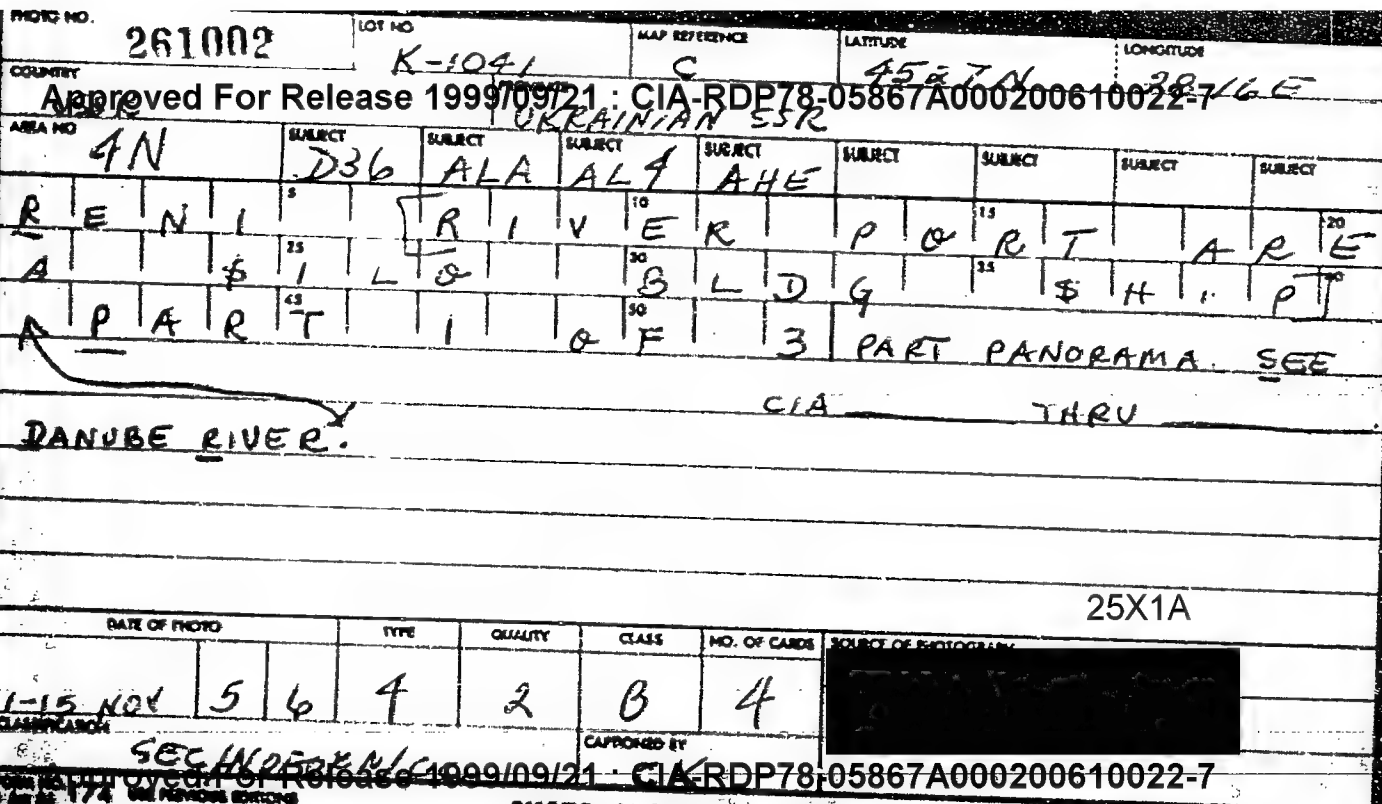 PHOTO NO. 261002 LOT NO K-1041 MAP REFERENCE C LATITUDE 45 27 N LONGITUDE 28 16 E
COUNTRY USSR UKRAINIAN SSR
Approved For Release 1999/09/21 : CIA-RDP78-05867A000200610022-7
AREA NO 4N SUBJECT D36 SUBJECT ALA SUBJECT AL4 SUBJECT AHE SUBJECT SUBJECT SUBJECT SUBJECT
RENI [RIVER PORT ARE 5 10 15 20
A $ILO BLDG $HIP] 25 30 35 40
PART 1 OF 3 PART PANORAMA. SEE 45 50
CIA THRU
DANUBE RIVER.
25X1A
DATE OF PHOTO TYPE QUALITY CLASS NO. OF CARDS SOURCE OF PHOTOGRAPH
1-15 NOV 56 4 2 B 4
CLASSIFICATION CAPTIONED BY
Approved For Release 1999/09/21 : CIA-RDP78-05867A000200610022-7
174 USE PREVIOUS EDITIONS